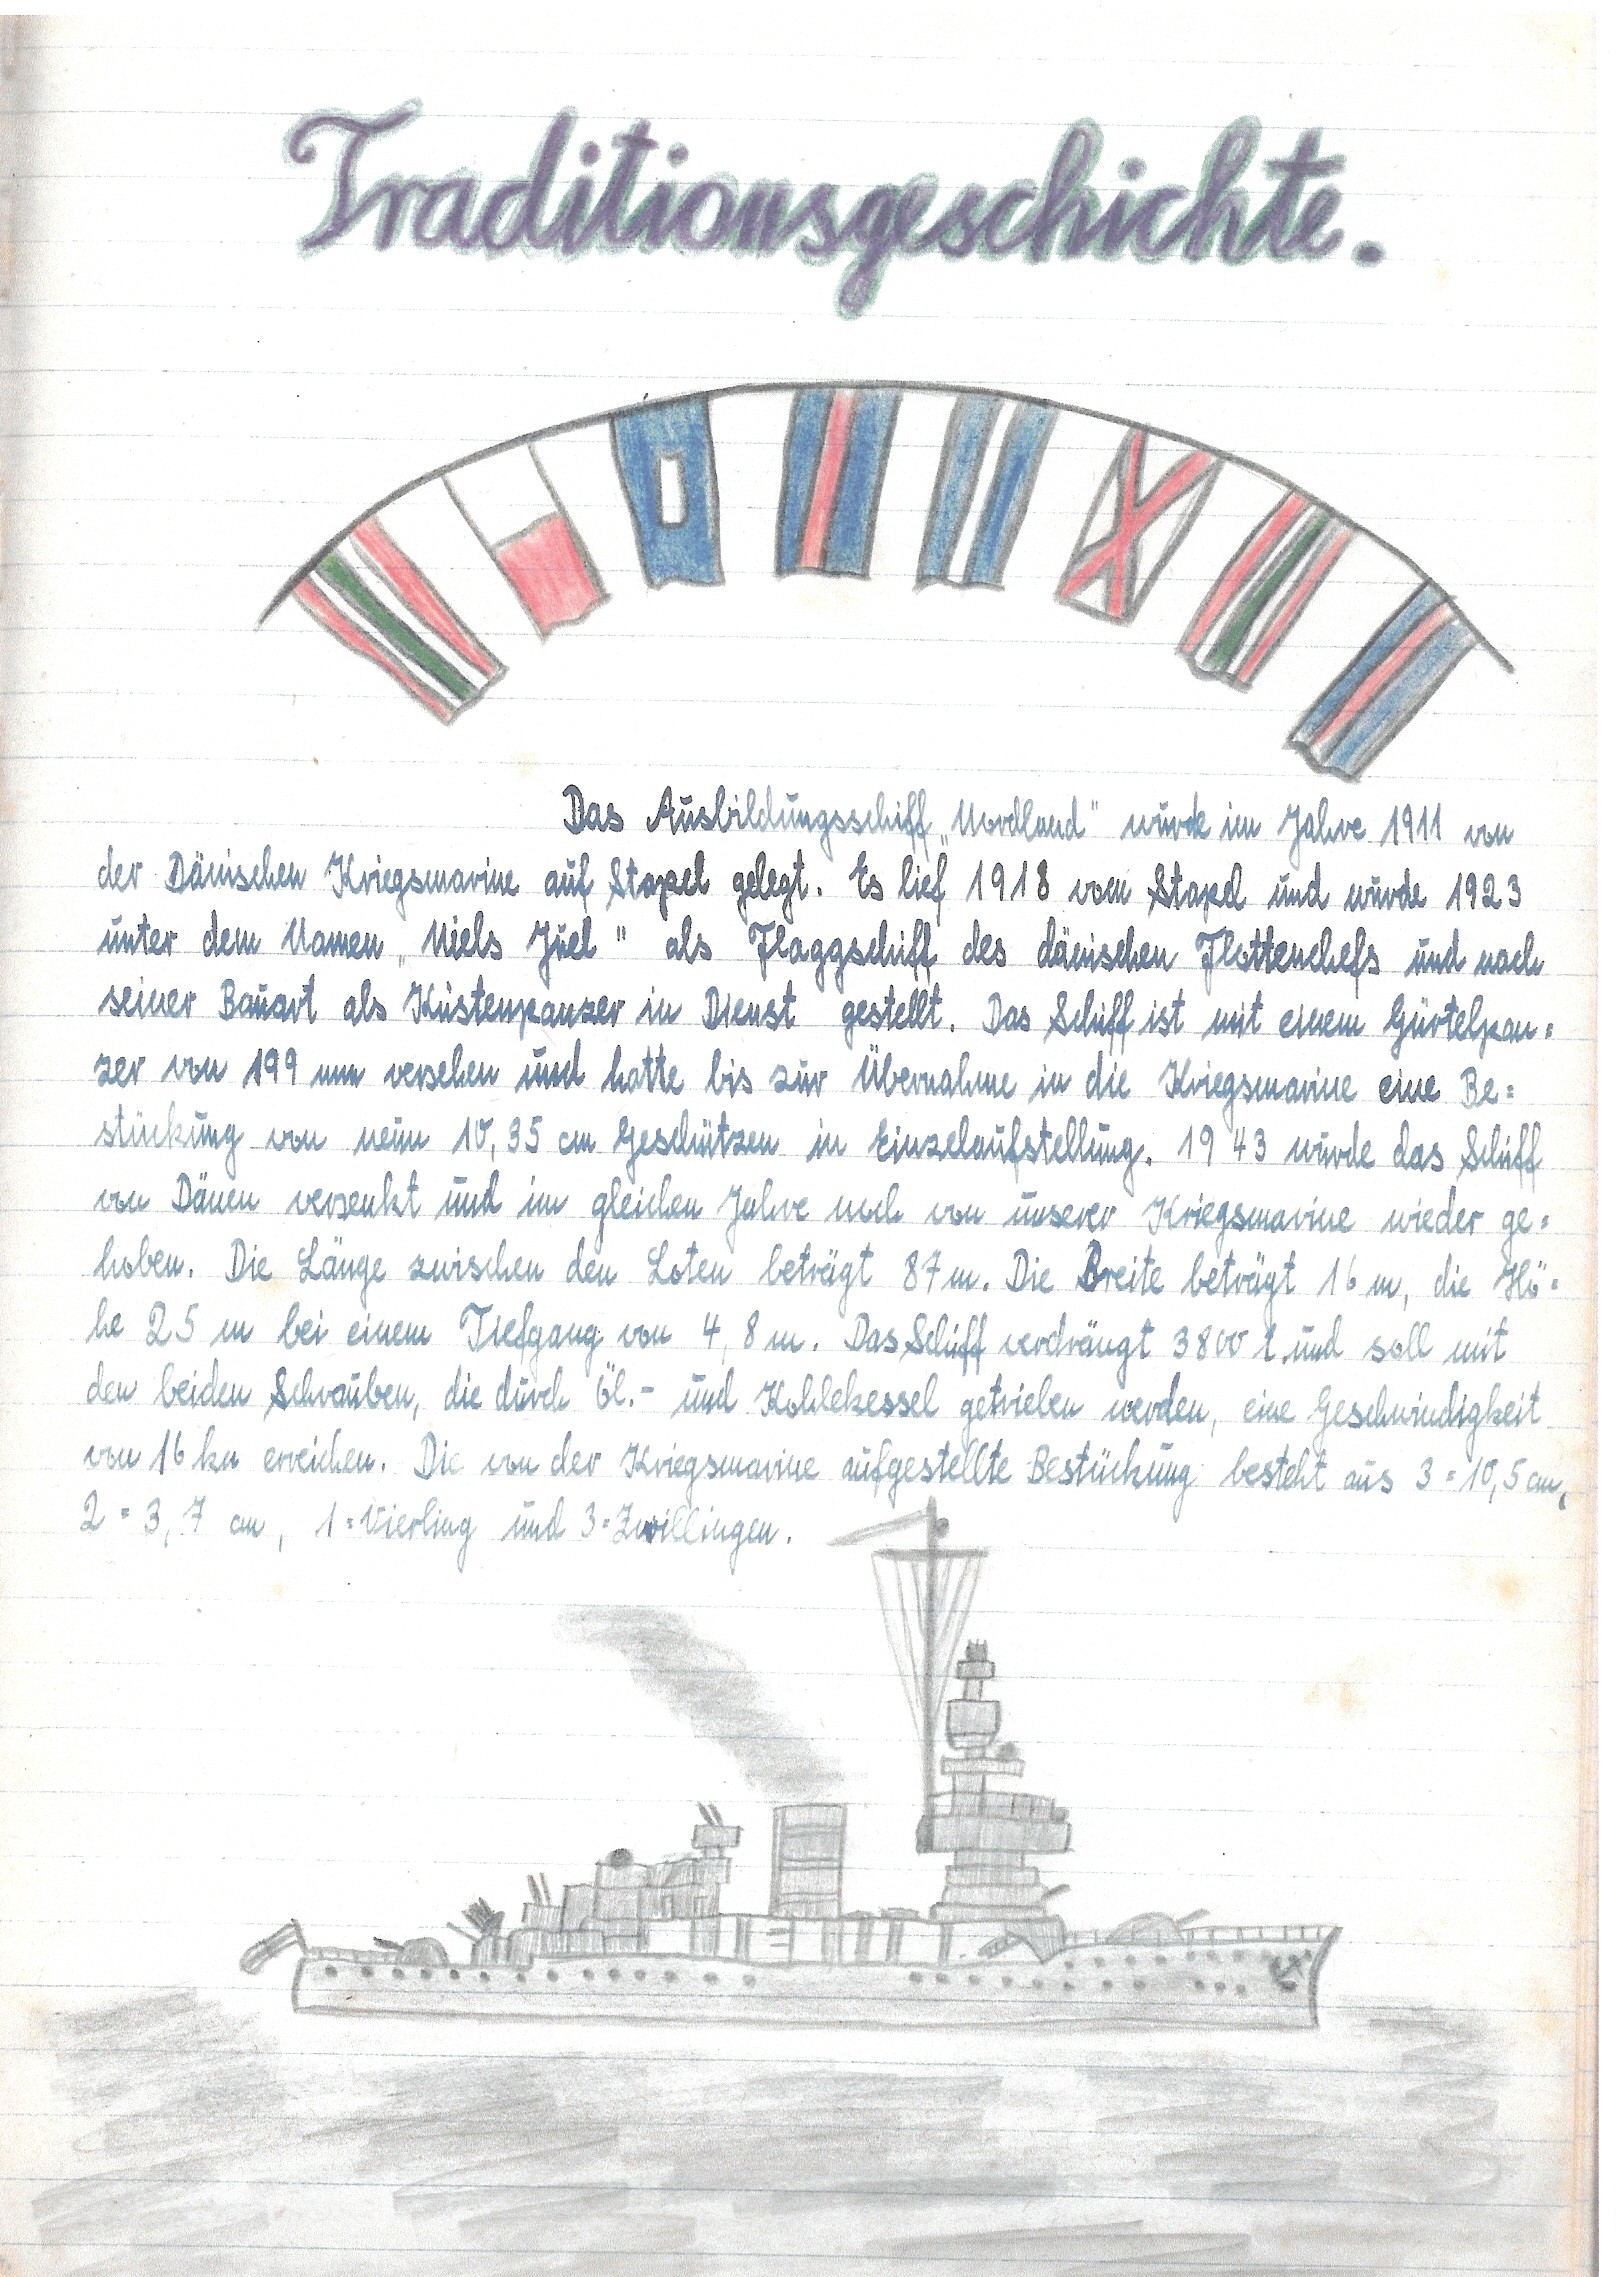 Traditionsgeschichte.
Das Ausbildungsschiff „Nordland" wurde im Jahre 1911 von
der Dänischen Kriegsmarine auf Stapel gelegt. Es lief 1918 vom Stapel und wurde 1923
unter dem Namen „Niels Juel" als Flaggschiff des dänischen Flottenchefs und nach
seiner Bauart als Küstenpanzer in Dienst gestellt. Das Schiff ist mit einem Gürtelpan=
zer von 199 mm versehen und hatte bis zur Übernahme in die Kriegsmarine eine Be=
stückung von neun 10,35 cm Geschützen in Einzelaufstellung. 1943 wurde das Schiff
von Dänen versenkt und im gleichen Jahre noch von unserer Kriegsmarine wieder ge=
hoben. Die Länge zwischen den Loten beträgt 87 m. Die Breite beträgt 16 m, die Hö=
he 25 m bei einem Tiefgang von 4,8 m. Das Schiff verdrängt 3800 t und soll mit
den beiden Schrauben, die durch Öl.- und Kohlekessel getrieben werden, eine Geschwindigkeit
von 16 kn erreichen. Die von der Kriegsmarine aufgestellte Bestückung besteht aus 3=10,5 cm,
2=3,7 cm, 1=Vierling und 3=Zwillingen.